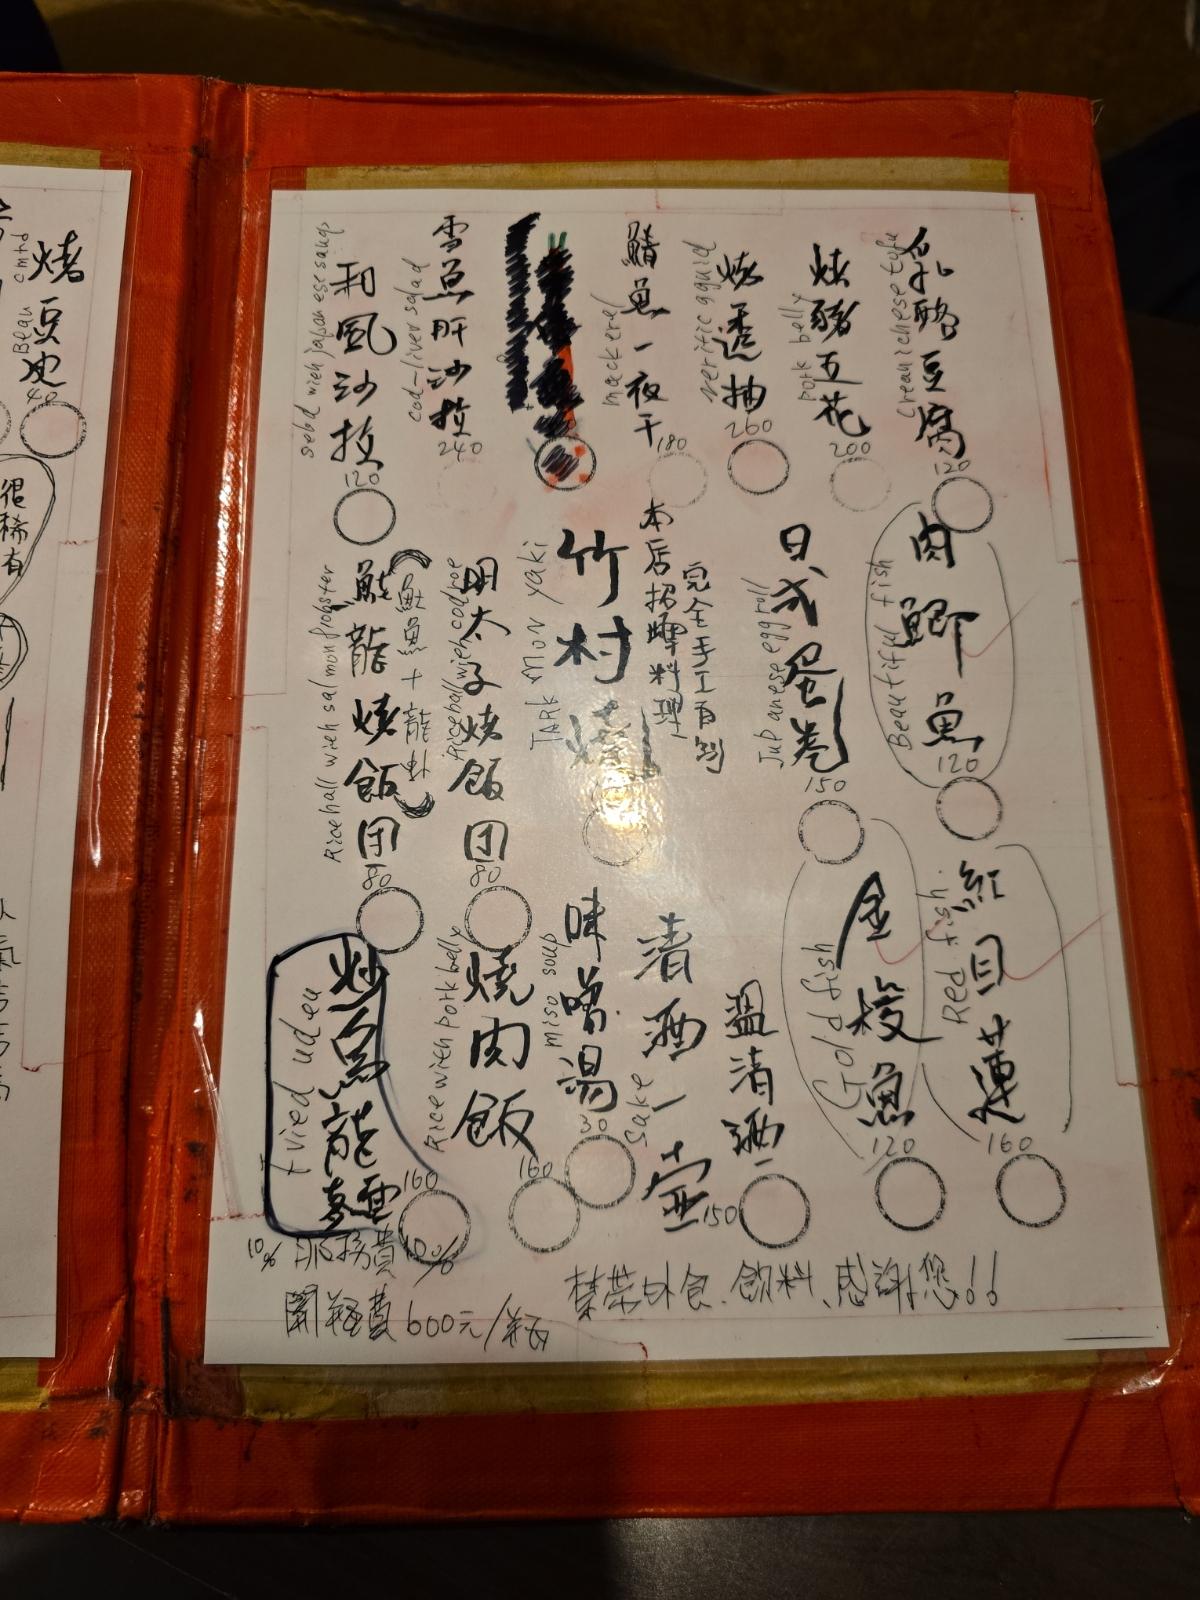 乳酪豆腐
creamichese tofu
120
烤豬五花
pork belly
200
烤透抽
260
鯖魚一夜干
mackerel
180
雪魚肝沙拉
cod-liver salad
240
和風沙拉
120
肉鯽魚
Beautiful fish
120
日式蛋卷
Jupanese eggroll
150
完全手工
本店招牌料理
竹村燒
TARK MON yaki
明太子燒飯団
Riceball wieh codroe
80
(魚 + 龍蝦)
龍燒飯団
Riceball wieh salmon frobster
80
紅目蓮
Red fish
160
金梭魚
Gold fish
120
溫清酒
清酒一壺
sake
150
味噌湯
miso soup
30
燒肉飯
Rice with pork belly
160
炒烏龍麵
fried uden
160
禁帶外食.飲料、感謝您!!
10% 服務費 10%
開瓶費 600元/瓶
烤豆皮
Bean
40
很稀有